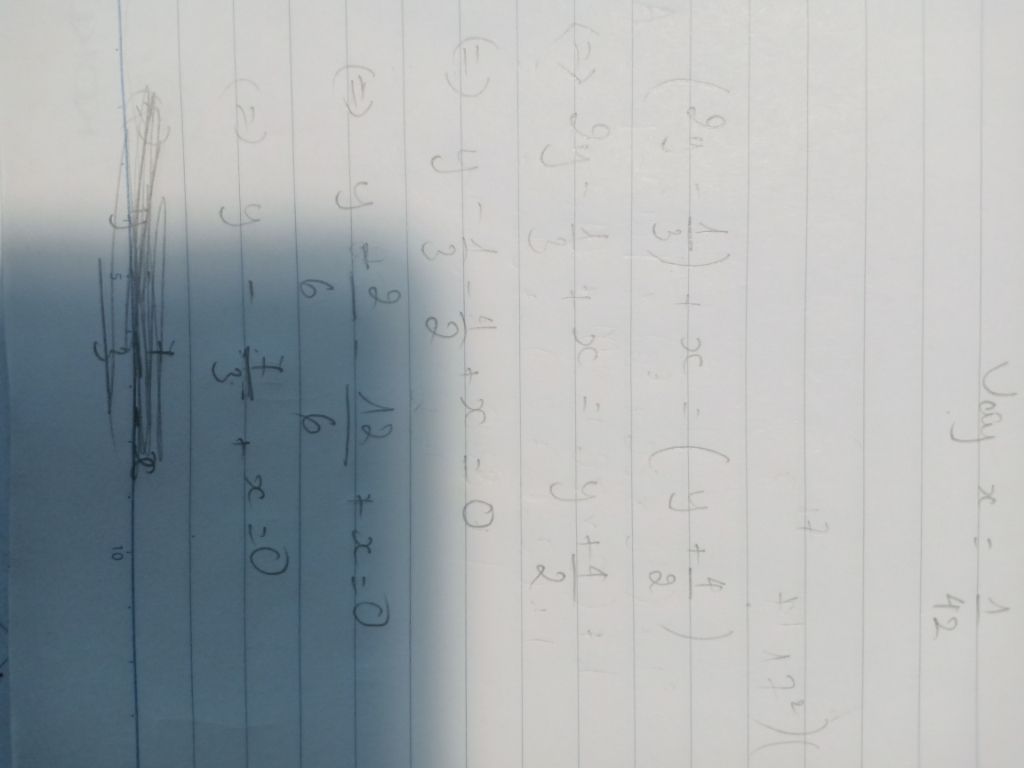 Vậy x = 1/42
(2y - 1/3) + x = (y + 4/2)
(=) 2y - 1/3 + x = y + 4/2
(=) y - 1/3 - 4/2 + x = 0
(=) y - 2/6 - 12/6 + x = 0
(=) y - 7/3 + x = 0
5
10